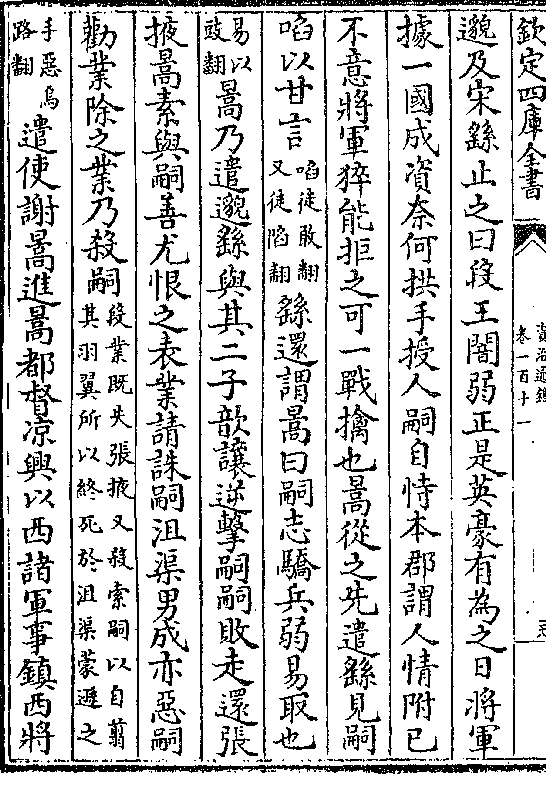 欽定四庫全書
資治通鑑
卷一百十一
邈及宋繇止之曰段王闇弱正是英豪有為之日將軍
據一國成資奈何拱手授人嗣自恃本郡謂人情附已
不意將軍猝能拒之可一戰擒也暠從之先遣繇見嗣
啗以甘言啗徒敢翻又徒陷翻繇還謂暠曰嗣志驕兵弱易取也
易以豉翻暠乃遣邈繇與其二子歆讓逆擊嗣嗣敗走還張
掖暠素與嗣善尤恨之表業請誅嗣沮渠男成亦惡嗣
勸業除之業乃殺嗣段業既失張掖又殺索嗣以自翦其羽翼所以終死於沮渠蒙遜之
手惡烏路翻遣使謝暠進暠都督凉興以西諸軍事鎮西將